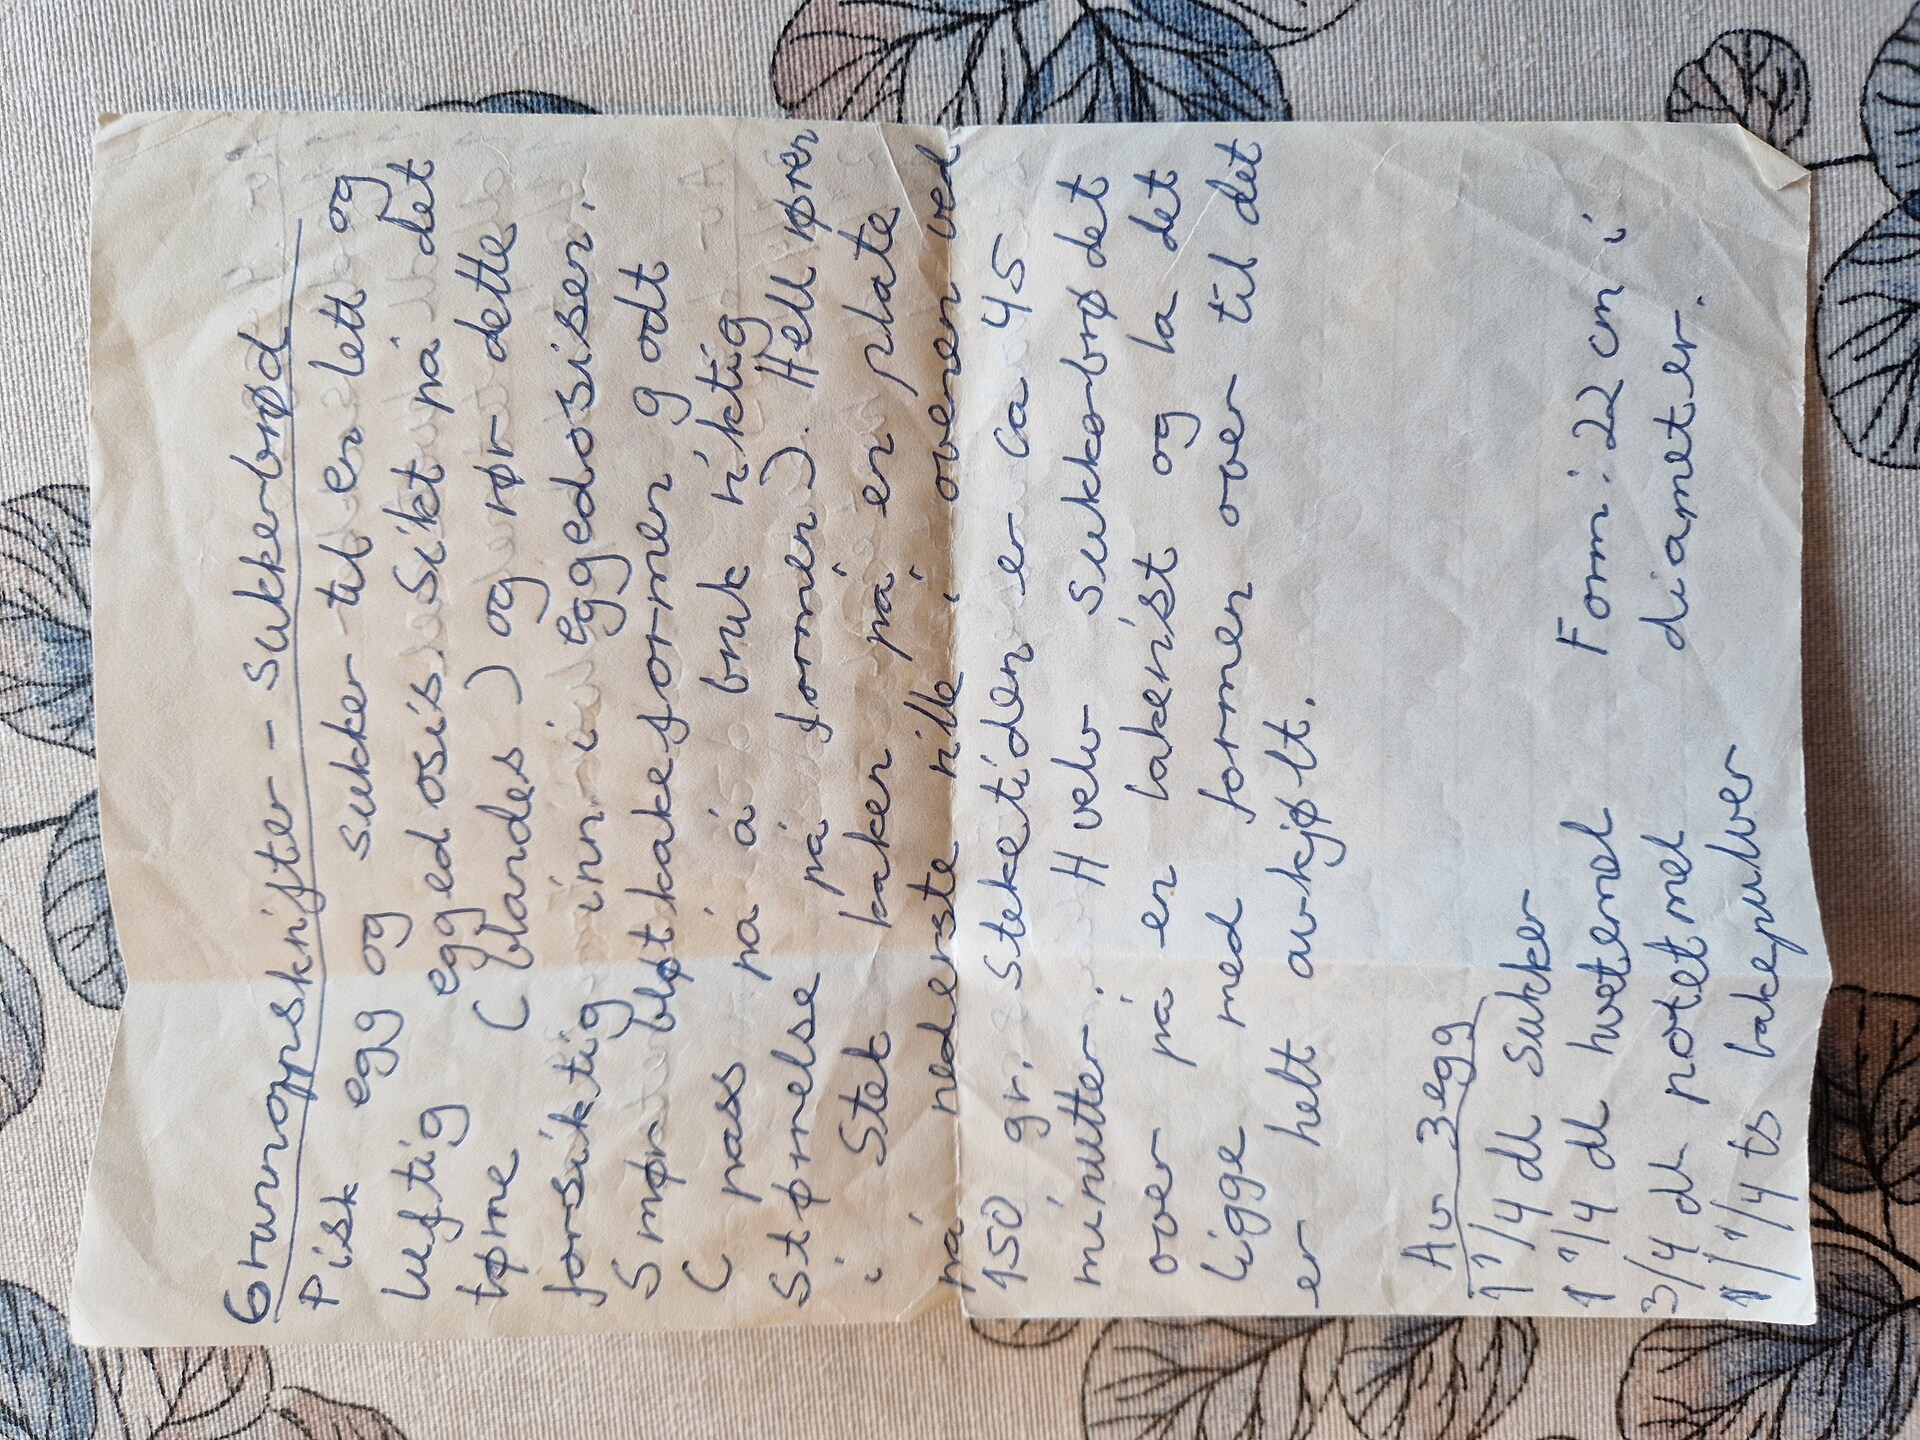 Grunnoppskrifter - Sukkerbrød
Pisk egg og sukker til en lett og
luftig eggedosis. Sikt på det
tørre (blandes) og rør dette
forsiktig inn i eggedosisen.
Smør bløtkakeformen godt
( pass på å bruk riktig
Størrelse på formen). Hell røren
i Stek kaken på en plate
på nederste rille i ovenen ved
150 gr. Steketiden er ca 45
minutter. Hvelv sukkerbrødet
over på en bakerist og la det
ligge med formen over til det
er helt avkjølt.
Av 3 egg
1 1/4 dl sukker
1 1/4 dl hvetemel
3/4 dl potetmel
1/1/4 ts bakepulver
Form: 22 cm i
diameter.